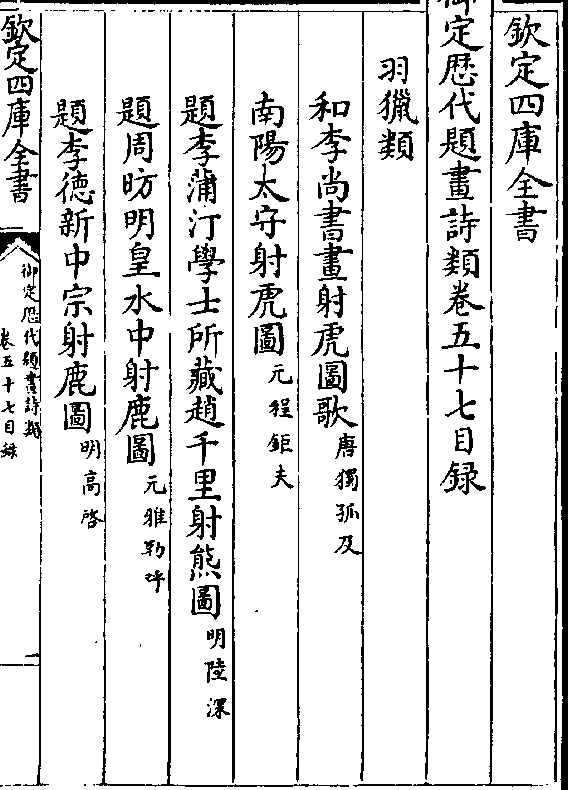 欽定四庫全書
御定歴代題畫詩類卷五十七目録
羽獵類
和李尚書畫射虎圖歌唐獨孤及
南陽太守射虎圖元程鉅夫
題李蒲汀學士所藏趙千里射熊圖明陸深
題周昉明皇水中射鹿圖元雅勒呼
題李德新中宗射鹿圖明高啓
欽定四庫全書
御定歴代題畫詩類
卷五十七目録
一